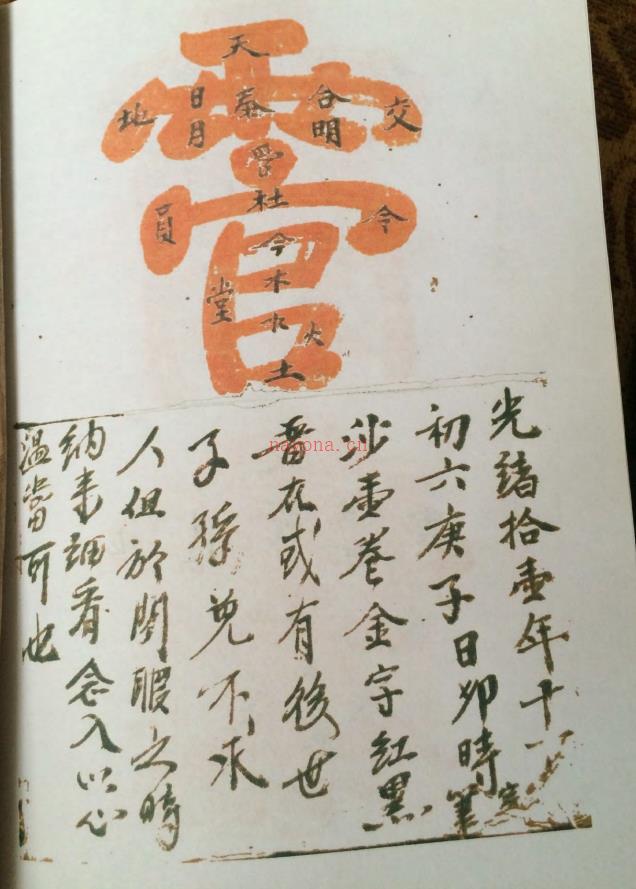 霄官
天
交 合明 泰 日月 地
雪
社
令 今 員
木
水 火 堂
土
光緒拾壹年十一
初六庚子日卯時定筆
沙壷卷金字紅黑
晋在或有後世
子孫免不求
人但於閑暇之時
納来細看念入以心
温當可也
nayona.cn